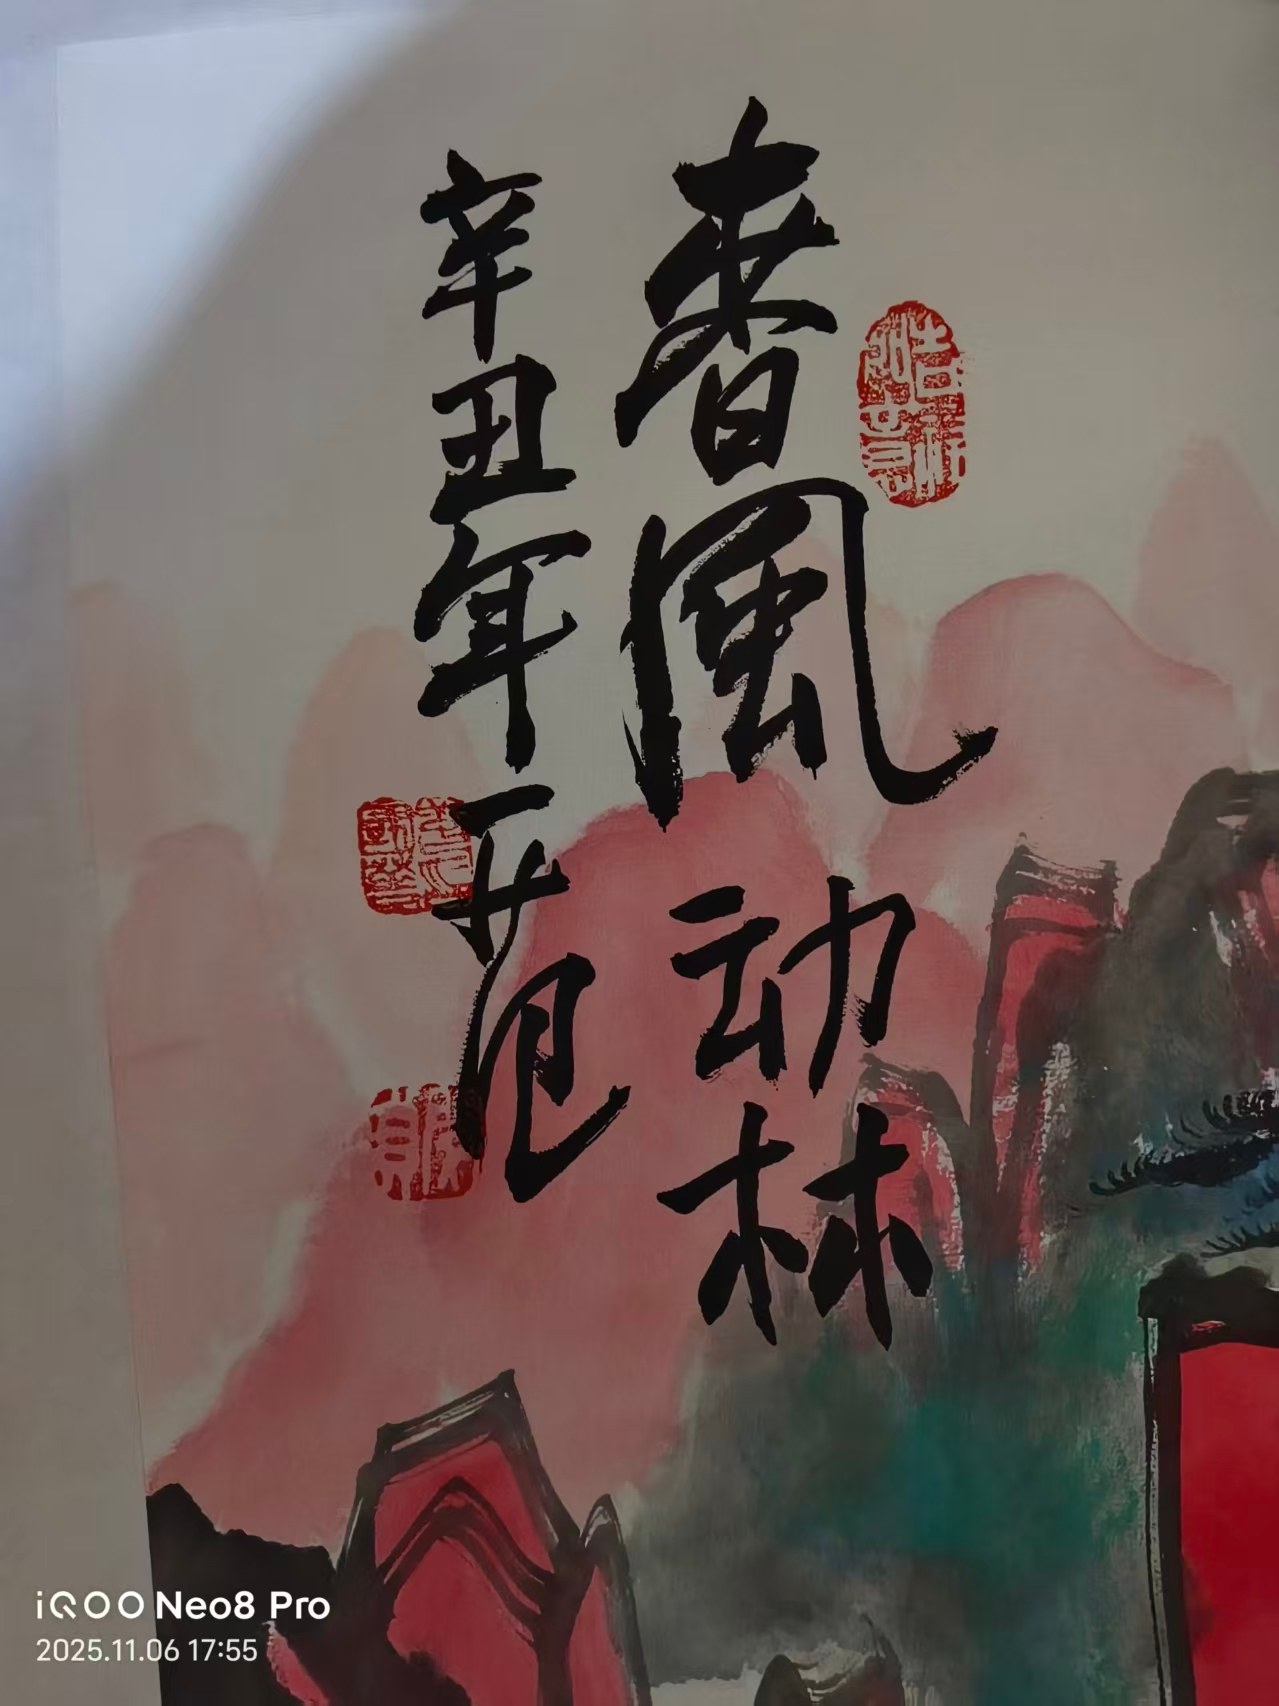 春風动林
辛丑年一范
吉祥如意
iQOO Neo8 Pro
2025.11.06 17:55